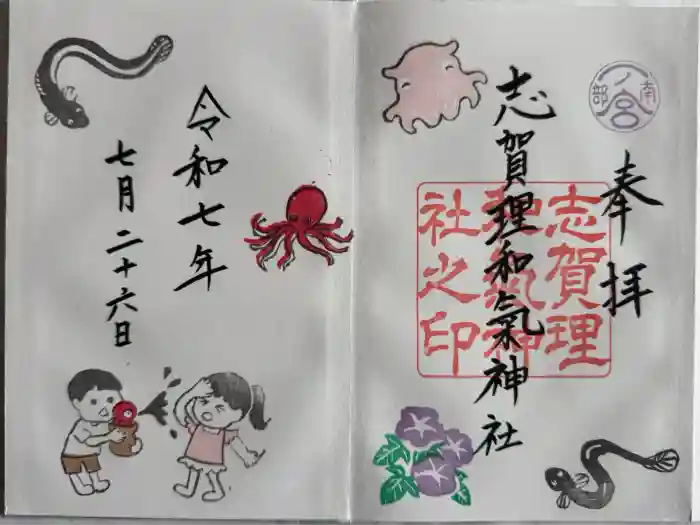 奉拝
志賀理和氣神社
志賀理
和氣神
社之印
一ノ宮
南部
令和七年
七月二十六日